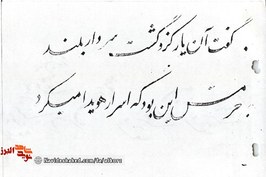 گفت آن یار کزو گشت سر دار بلند
جرمش این بود که اسرار هویدا میکرد
© Navideshahed.com/fa/alborz